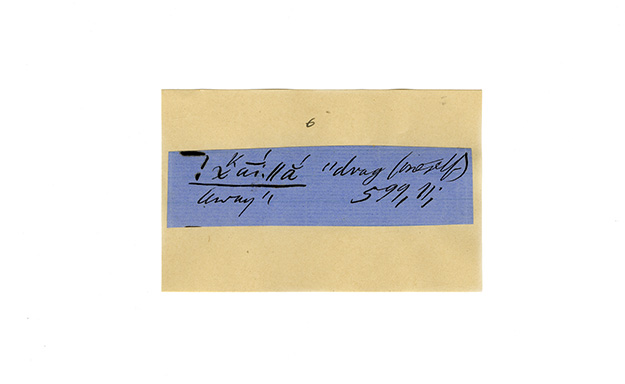 6
"drag (oneself)
away" 599, 11;